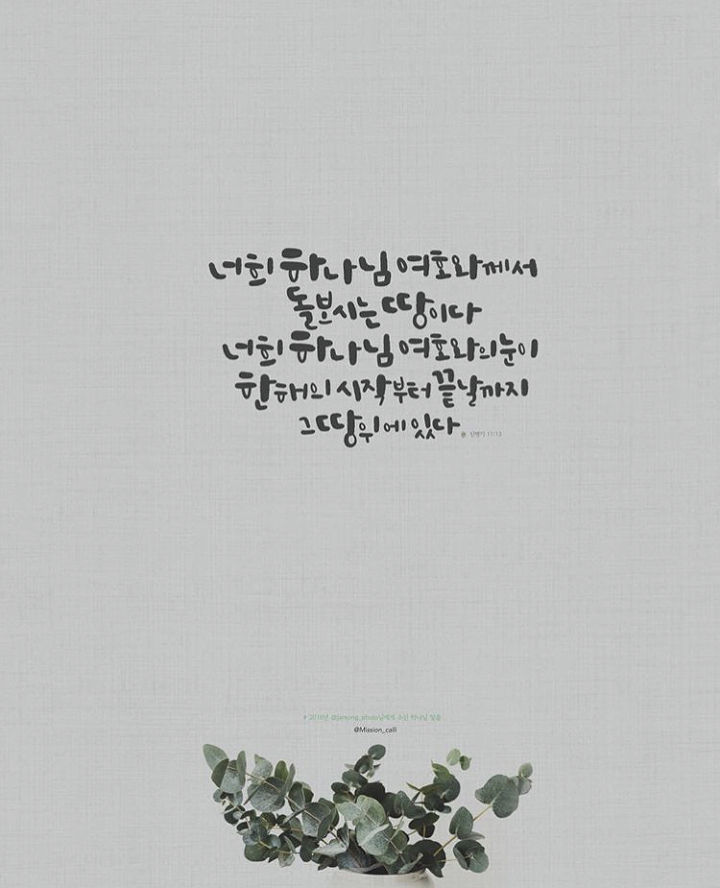 너희 하나님 여호와께서
돌보시는 땅이다
너희 하나님 여호와의 눈이
한 해의 시작부터 끝날까지
그 땅 위에 있다
@Mission_calli